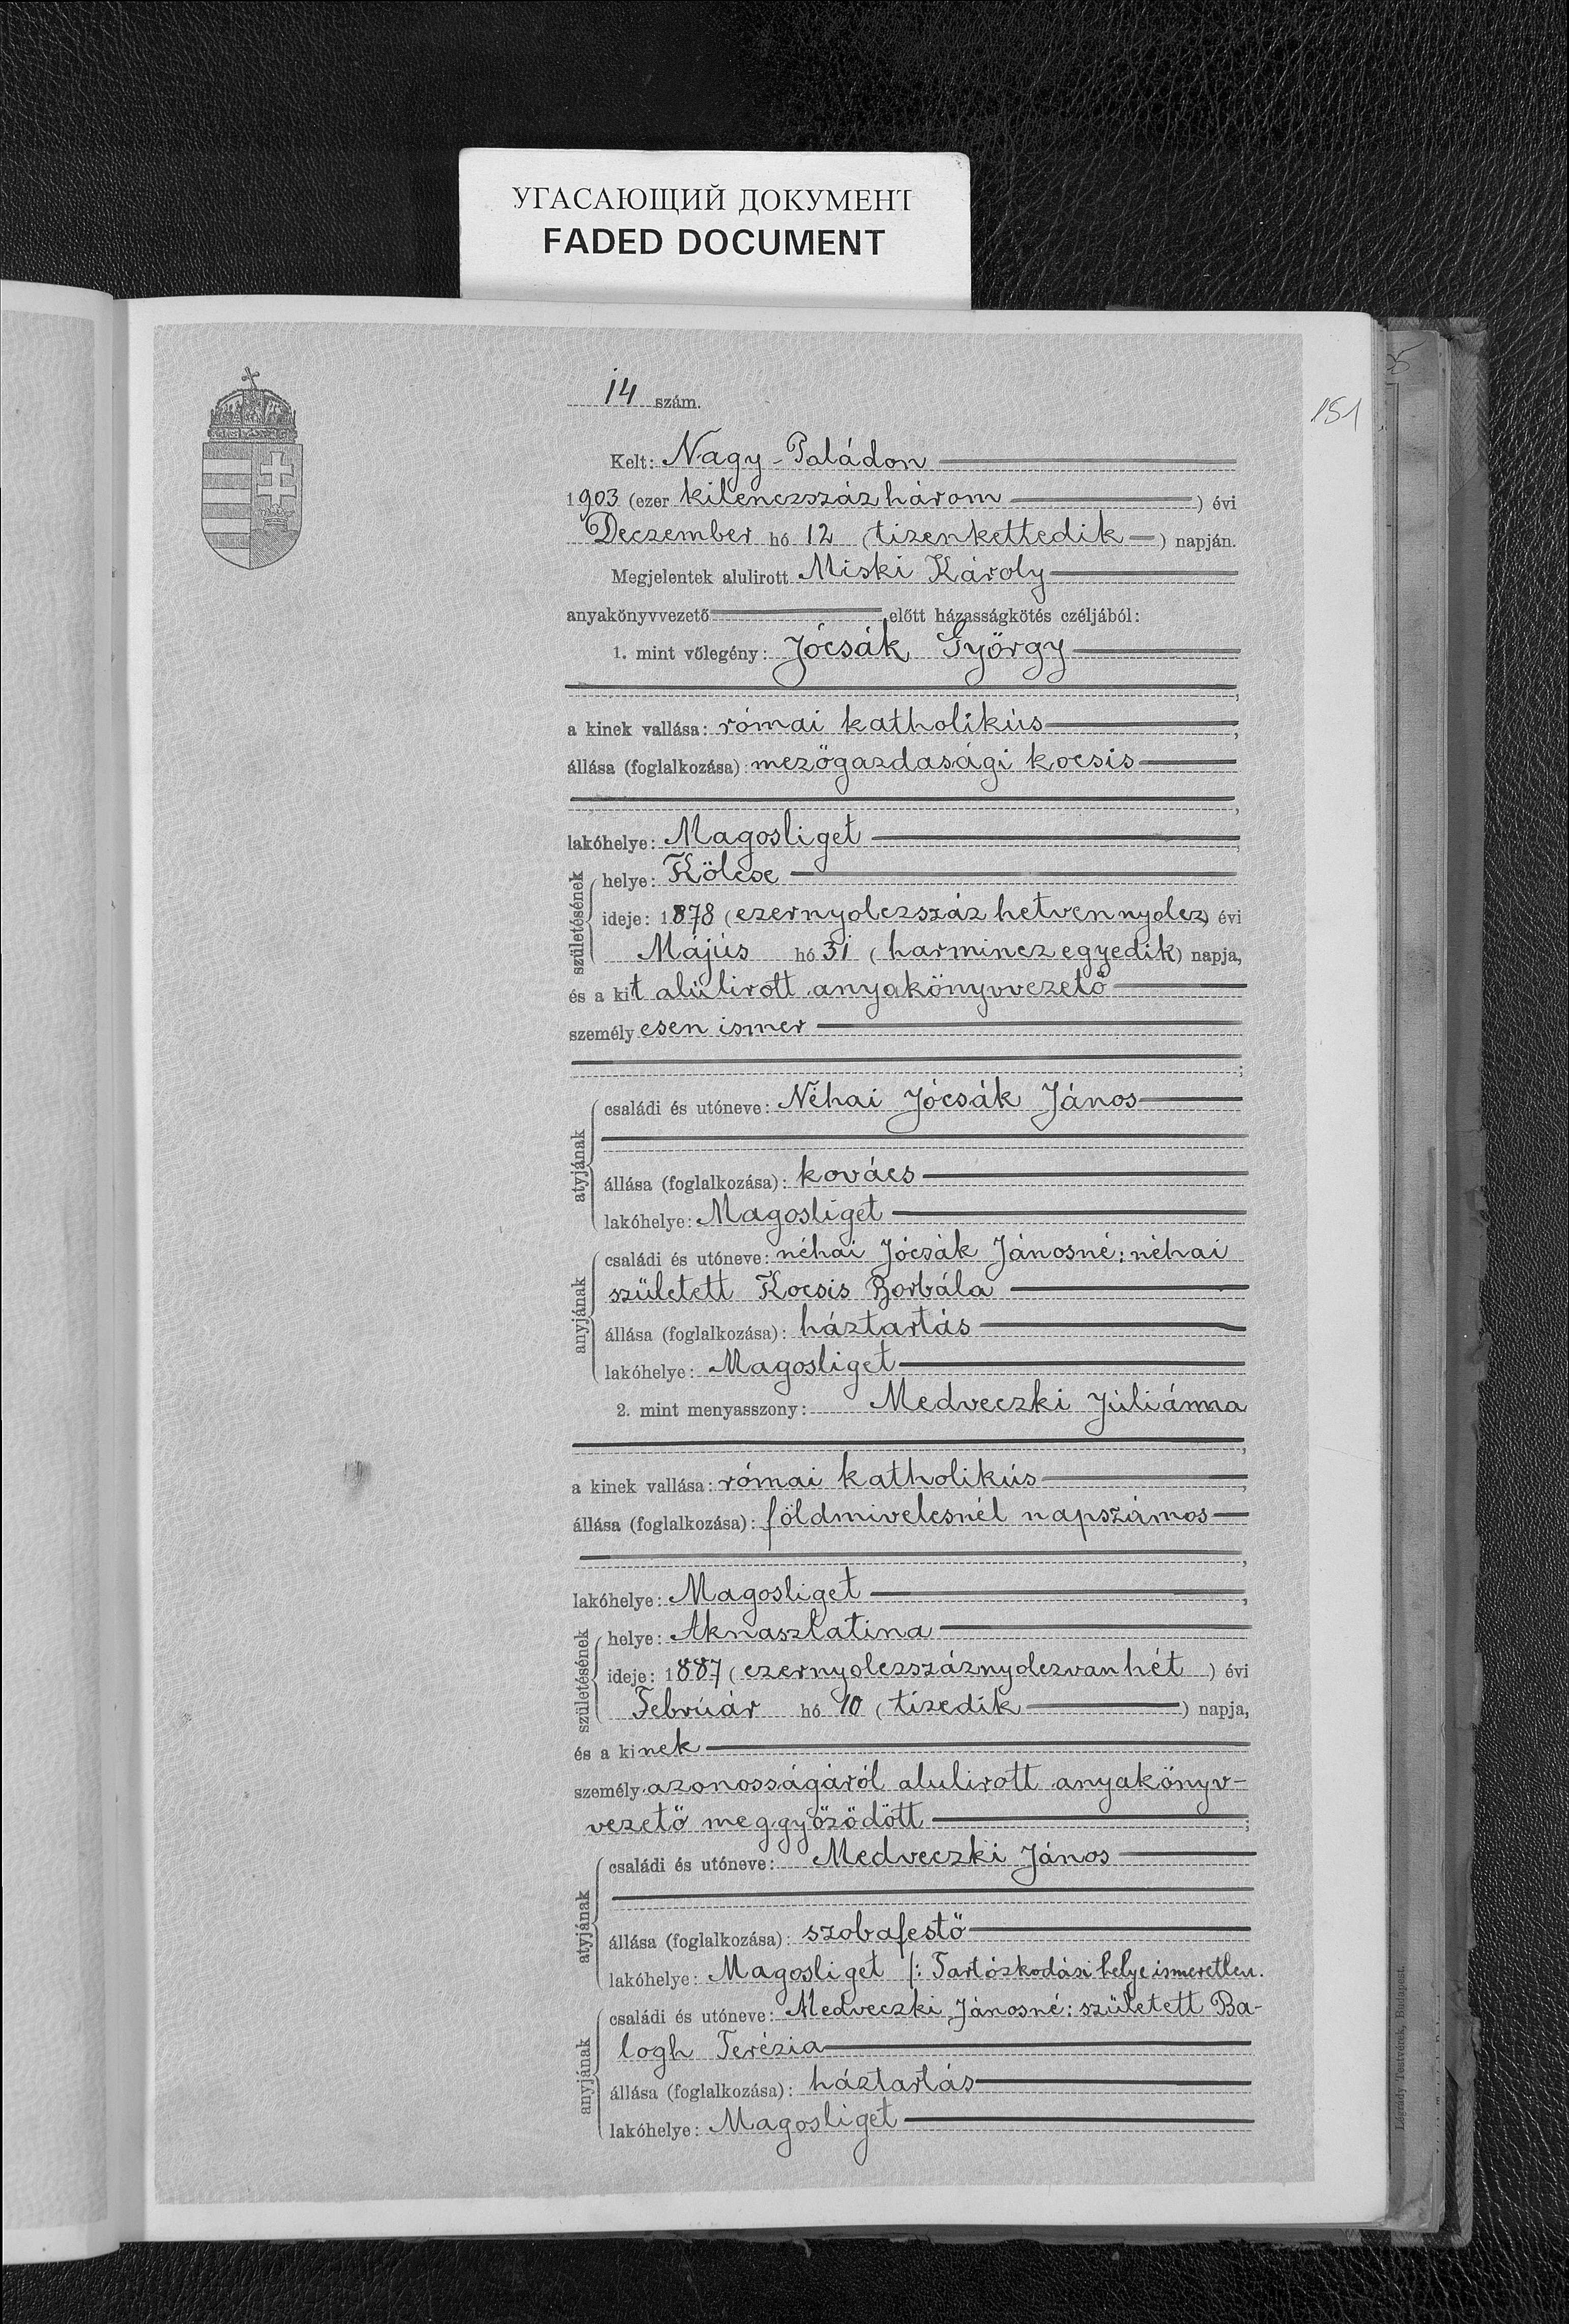 УГАСАЮЩИЙ ДОКУМЕНТ
FADED DOCUMENT
14 szám.
151
Kelt: Nagy-Paládon
1903 (ezer kilenczszáz három) évi
Deczember hó 12 (tizenkettedik) napján.
Megjelentek alulirott Miski Károly
anyakönyvvezető előtt házasságkötés czéljából:
1. mint vőlegény: Jócsák György
a kinek vallása: római katholikús
állása (foglalkozása): mezőgazdasági kocsis
lakóhelye: Magosliget
születésének
helye: Kölcse
ideje: 1878 (ezernyolczszáz hetven nyolcz) évi
Május hó 31 (harmincz egyedik) napja,
és a kit alúlirott anyakönyvvezető
személyesen ismer
atyjának
családi és utóneve: Néhai Jócsák János
állása (foglalkozása): kovács
lakóhelye: Magosliget
anyjának
családi és utóneve: néhai Jócsák Jánosné: néhai
született Kocsis Borbála
állása (foglalkozása): háztartás
lakóhelye: Magosliget
2. mint menyasszony: Medveczki Júliánna
a kinek vallása: római katholikús
állása (foglalkozása): földmivelesnél napszámos
lakóhelye: Magosliget
születésének
helye: Aknaszlatina
ideje: 1887 (ezernyolczszáznyolczvan hét) évi
Febrúár hó 10 (tizedik) napja,
és a kinek
személyazonosságáról alulirott anyakönyv-
vezető meggyőződött
atyjának
családi és utóneve: Medveczki János
állása (foglalkozása): szobafestő
lakóhelye: Magosliget /: Tartózkodási helye ismeretlen.
anyjának
családi és utóneve: Medveczki Jánosné: született Ba-
logh Terézia
állása (foglalkozása): háztartás
lakóhelye: Magosliget
Légrády Testvérek, Budapest.